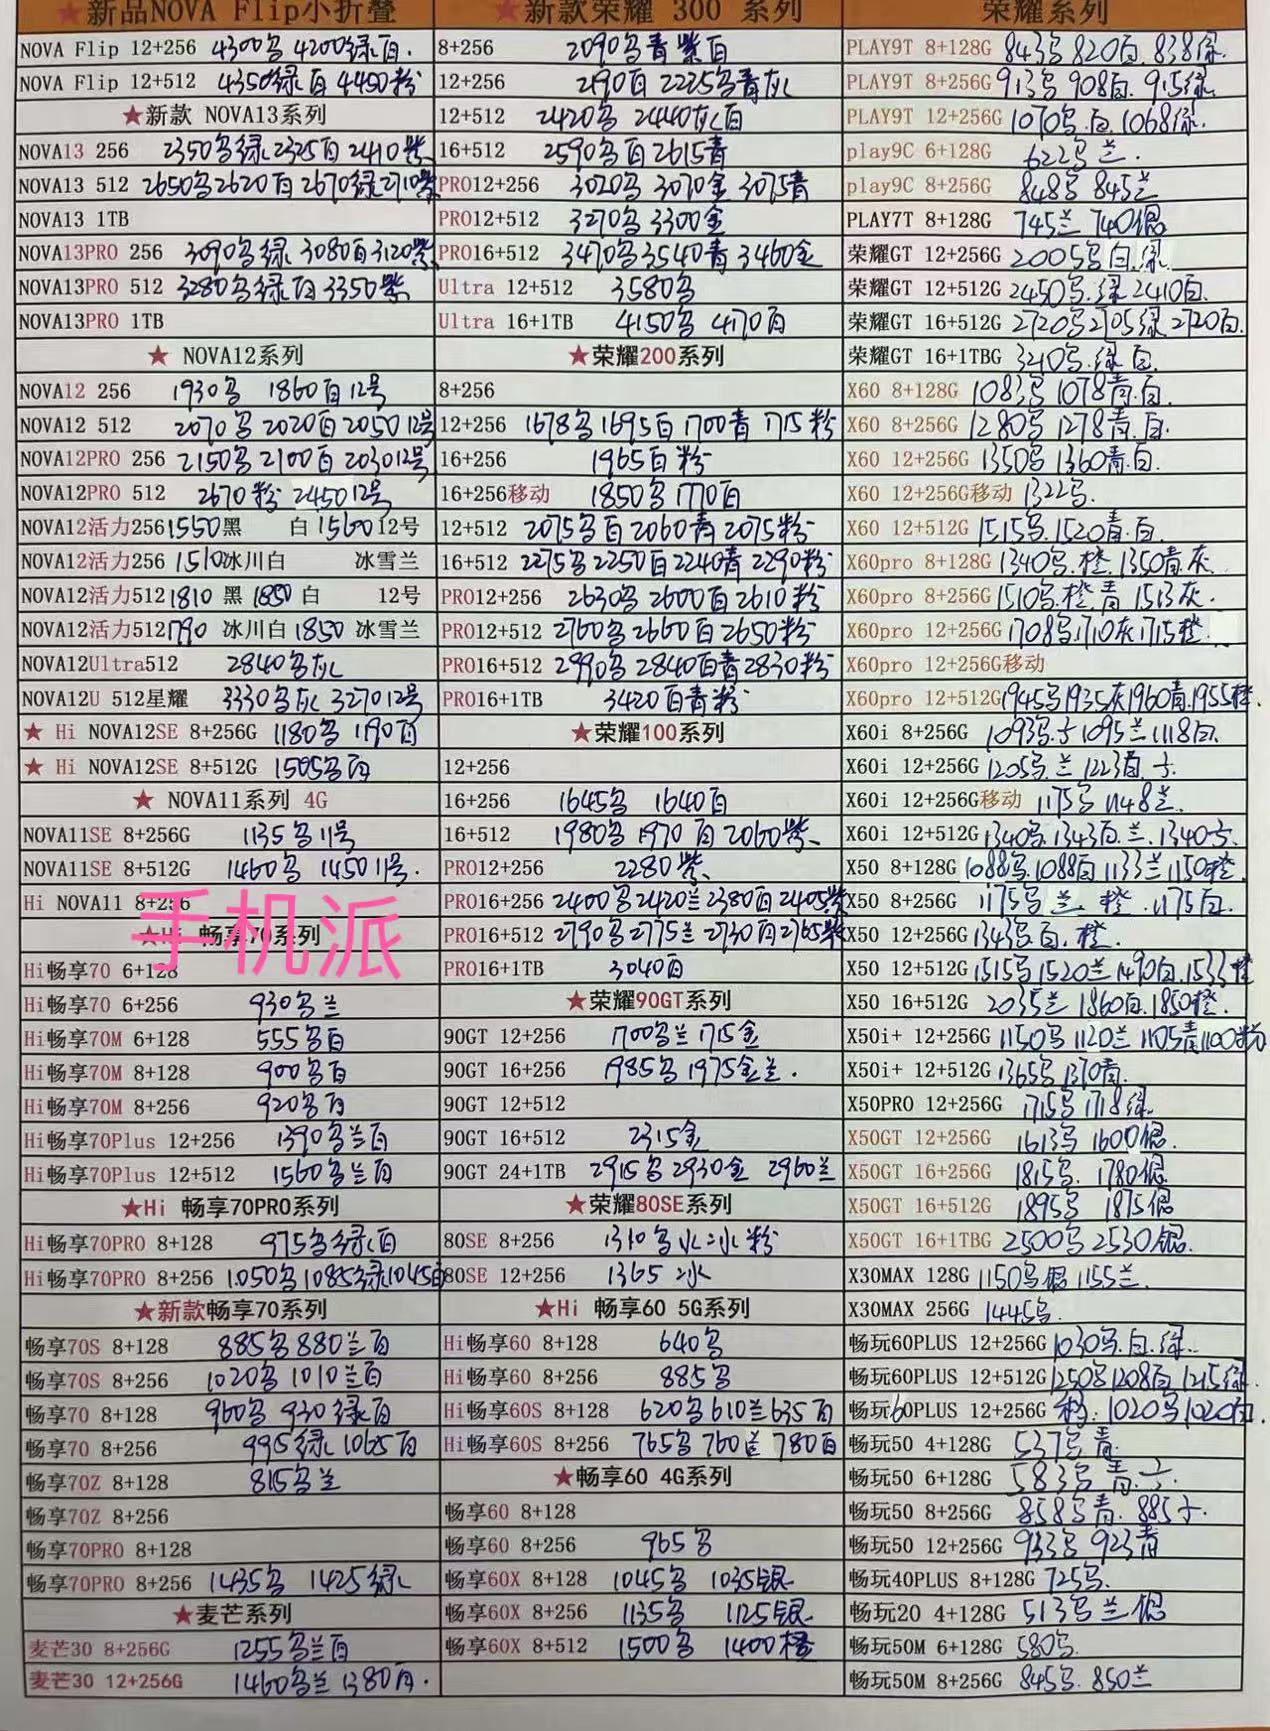 ★新品NOVA Flip小折叠
NOVA Flip 12+256 4300乌 4200绿白.
NOVA Flip 12+512 4350绿白 4450粉
★新款 NOVA13系列
NOVA13 256 2350乌绿 2325白 2410紫
NOVA13 512 2650乌 2620白 2670绿 2710紫
NOVA13 1TB
NOVA13PRO 256 3090乌绿 3080白 3120紫
NOVA13PRO 512 3280乌绿白 3350紫
NOVA13PRO 1TB
★ NOVA12系列
NOVA12 256 1930乌 1860白12号
NOVA12 512 2070乌 2020白 2050 12号
NOVA12PRO 256 2150乌 2100白 2030 12号
NOVA12PRO 512 2670粉 2450 12号
NOVA12活力256 1550黑 白 1560 12号
NOVA12活力256 1510冰川白 冰雪兰
NOVA12活力512 1810 黑 1850 白 12号
NOVA12活力512 1790 冰川白 1850 冰雪兰
NOVA12Ultra512 2840乌灰
NOVA12U 512星耀 3330乌灰 3270 12号
★ Hi NOVA12SE 8+256G 1180乌 1190白
★ Hi NOVA12SE 8+512G 1505乌白
★ NOVA11系列 4G
NOVA11SE 8+256G 1135乌 11号
NOVA11SE 8+512G 1460乌 1450 11号.
Hi NOVA11 8+256
手机派
★Hi 畅享70系列
Hi畅享70 6+128
Hi畅享70 6+256 930乌兰
Hi畅享70M 6+128 555乌白
Hi畅享70M 8+128 900乌白
Hi畅享70M 8+256 920乌白
Hi畅享70Plus 12+256 1390乌兰白
Hi畅享70Plus 12+512 1560乌兰白
★Hi 畅享70PRO系列
Hi畅享70PRO 8+128 975乌绿白
Hi畅享70PRO 8+256 1050乌 1085绿 1045白
★新款畅享70系列
畅享70S 8+128 885乌 880兰白
畅享70S 8+256 1020乌 1010兰白
畅享70 8+128 960乌 930绿白
畅享70 8+256 995绿 1065白
畅享70Z 8+128 815乌兰
畅享70Z 8+256
畅享70PRO 8+128
畅享70PRO 8+256 1435乌 1425绿
★麦芒系列
麦芒30 8+256G 1255乌兰白
麦芒30 12+256G 1460乌兰 1380白.
★新款荣耀 300 系列
8+256 2090乌青紫白
12+256 2190白 2225乌青灰
12+512 2420乌 2440灰白
16+512 2590乌白 2615青
PRO12+256 3020乌 3070金 3075青
PRO12+512 3270乌 3300金
PRO16+512 3470乌 3540青 3460金
Ultra 12+512 3580乌
Ultra 16+1TB 4150乌 4170白
★荣耀200系列
8+256
12+256 1678乌 1695白 1700青 1715粉
16+256 1965白粉
16+256移动 1850乌 1770白
12+512 2075乌白 2060青 2075粉
16+512 2275乌 2250白 2240青 2290粉
PRO12+256 2630乌 2600白 2610粉
PRO12+512 2760乌 2660白 2650粉
PRO16+512 2990乌 2840白青 2830粉
PRO16+1TB 3420白青粉
★荣耀100系列
12+256
16+256 1645乌 1640白
16+512 1980乌 1970白 2060紫
PRO12+256 2280紫
PRO16+256 2400乌 2420兰 2380白 2405紫
PRO16+512 2790乌 2775兰 2730白 2765紫
PRO16+1TB 3040白
★荣耀90GT系列
90GT 12+256 1700乌兰 1715金
90GT 16+256 1985乌 1975金兰.
90GT 12+512
90GT 16+512 2315金
90GT 24+1TB 2915乌 2930金 2960兰
★荣耀80SE系列
80SE 8+256 1310乌水冰粉
80SE 12+256 1365冰
★Hi 畅享60 5G系列
Hi畅享60 8+128 640乌
Hi畅享60 8+256 885乌
Hi畅享60S 8+128 620乌 610兰 635白
Hi畅享60S 8+256 765乌 760兰 780白
★畅享60 4G系列
畅享60 8+128
畅享60 8+256 965乌
畅享60X 8+128 1045乌 1035银
畅享60X 8+256 1135乌 1125银
畅享60X 8+512 1500乌 1400橙
荣耀系列
PLAY9T 8+128G 843乌 820白. 838绿.
PLAY9T 8+256G 913乌 908白. 915绿
PLAY9T 12+256G 1070乌.白.1068绿.
play9C 6+128G 622乌兰.
play9C 8+256G 848乌 845兰
PLAY7T 8+128G 745兰 740银
荣耀GT 12+256G 2005乌白.绿
荣耀GT 12+512G 2450乌.绿 2410白.
荣耀GT 16+512G 2720乌 2705绿 2720白.
荣耀GT 16+1TBG 3210乌.绿白.
X60 8+128G 1083乌 1078青.白
X60 8+256G 1280乌 1278青.白.
X60 12+256G 1350乌 1360青.白.
X60 12+256G移动 1322乌.
X60 12+512G 1515乌.1520青.白
X60pro 8+128G 1340乌.橙.1350青.灰.
X60pro 8+256G 1510乌.橙.青 1513灰.
X60pro 12+256G 1708乌.1710灰 1715橙
X60pro 12+256G移动
X60pro 12+512G 1945乌 1935灰 1960青.1955橙.
X60i 8+256G 1093乌.子 1095兰 1118白.
X60i 12+256G 1205乌.兰 1223白.子.
X60i 12+256G移动 1175乌 1148兰.
X60i 12+512G 1340乌.1343白.兰.1340子.
X50 8+128G 1088乌.1088白 1133兰 1150橙.
X50 8+256G 1175乌兰.橙.1175白.
X50 12+256G 1343乌白.橙.
X50 12+512G 1515乌 1520兰 1490白.1533橙
X50 16+512G 2035兰 1860白.1850橙.
X50i+ 12+256G 1150乌 1120兰 1105青 1100粉
X50i+ 12+512G 1365乌 1370青.
X50PRO 12+256G 1715乌 1718绿.
X50GT 12+256G 1613乌 1600银.
X50GT 16+256G 1815乌. 1780银
X50GT 16+512G 1895乌 1875银
X50GT 16+1TBG 2500乌 2530银.
X30MAX 128G 1150乌银 1155兰.
X30MAX 256G 1445乌.
畅玩60PLUS 12+256G 1030乌.白.绿.
畅玩60PLUS 12+512G 1250乌 1208白 1215绿.
畅玩60PLUS 12+256G 移. 1020乌 1020白.
畅玩50 4+128G 537乌青.
畅玩50 6+128G 583乌青.子.
畅玩50 8+256G 858乌青. 885子.
畅玩50 12+256G 933乌 923青
畅玩40PLUS 8+128G 725乌.
畅玩20 4+128G 513乌兰银
畅玩50M 6+128G 580乌.
畅玩50M 8+256G 845乌. 850兰